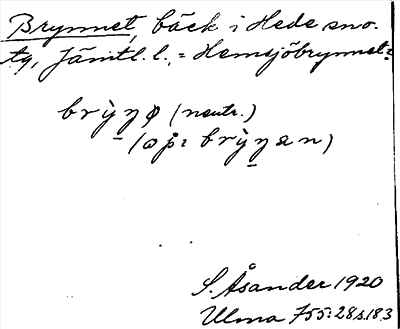 Brynnet, bäck i Hede sno-
tg, Jämtl. l., = Hemsjöbrynnet:
brỳn̠ø (neutr.)
(op: brỳn̠an)
S. Åsander 1920
Ulma 755:28 s. 183